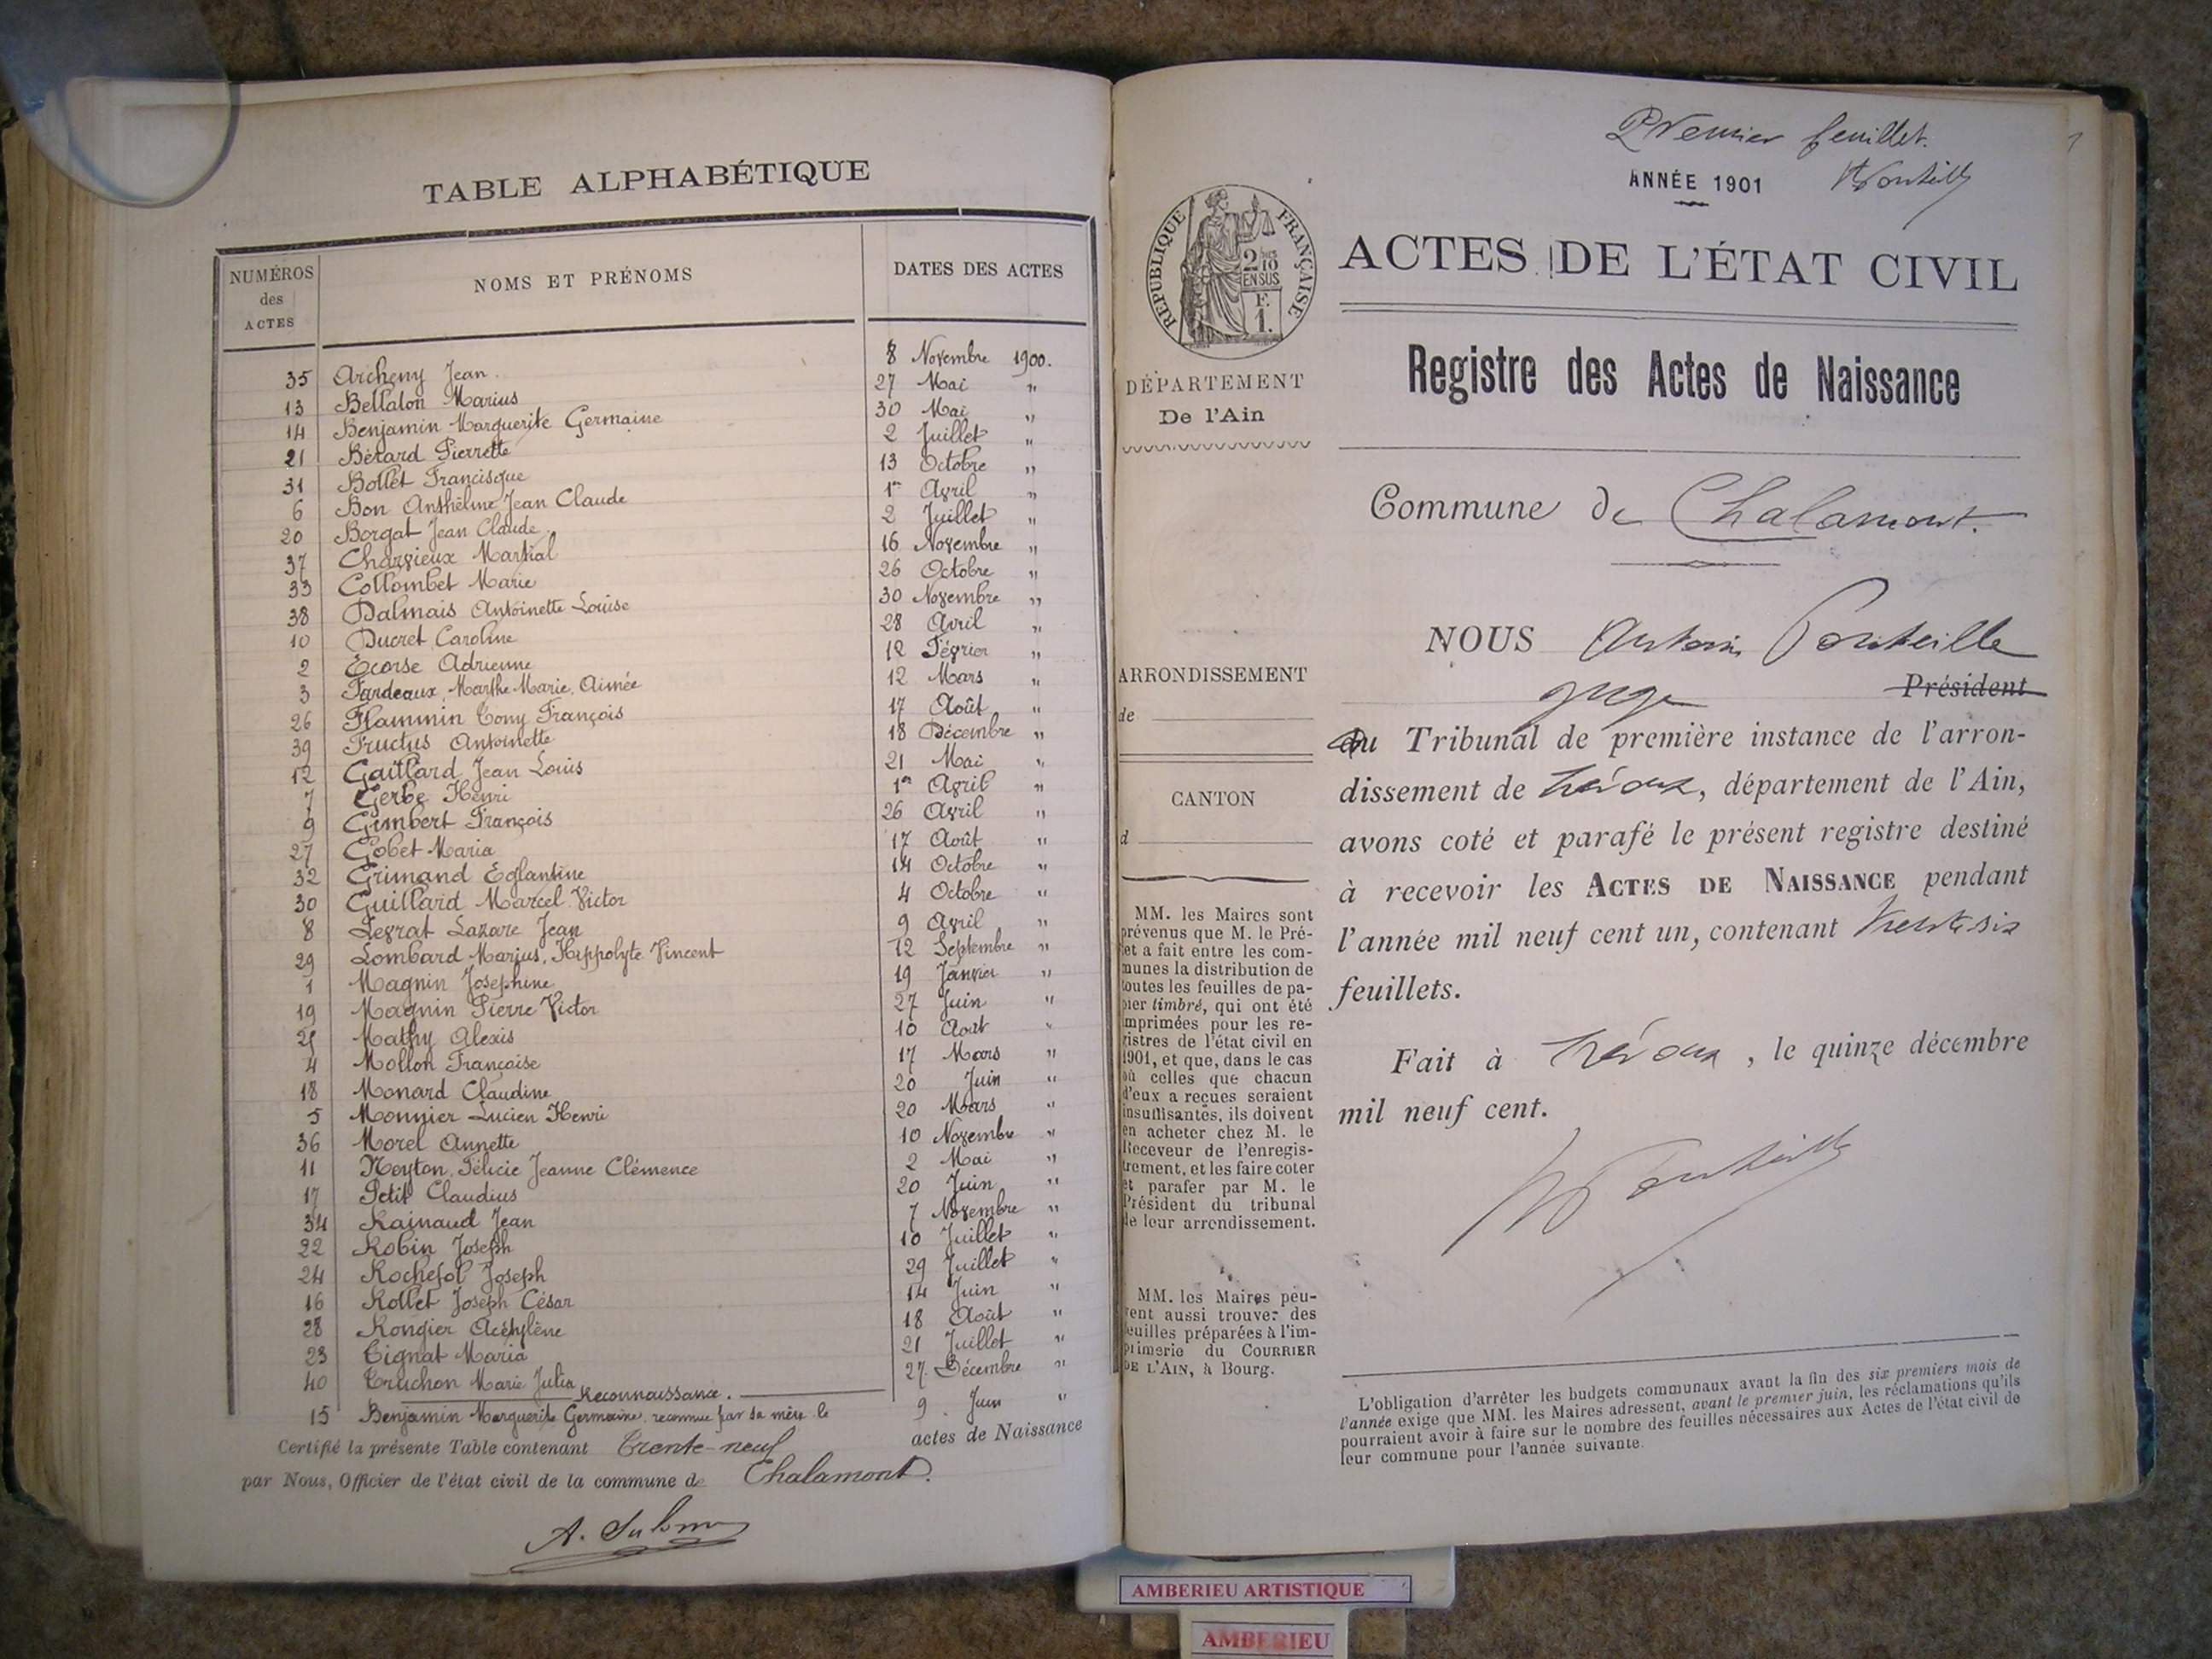 TABLE ALPHABÉTIQUE
NUMÉROS des ACTES NOMS ET PRÉNOMS DATES DES ACTES
35 Archeny Jean 8 Novembre 1900.
13 Bellaton Marius 27 Mai "
14 Benjamin Marguerite Germaine 30 Mai "
21 Bérard Pierrette 2 Juillet "
31 Bollet Francisque 13 Octobre "
6 Bon Anthelme Jean Claude 1er Avril "
20 Borgat Jean Claude 2 Juillet "
37 Charvieux Martial 16 Novembre "
33 Collombet Marie 26 Octobre "
38 Dalmais Antoinette Louise 30 Novembre "
10 Ducret Caroline 28 Avril "
2 Ecorse Adrienne 12 Février "
3 Fardeaux, Marthe Marie, Aimée 12 Mars "
26 Flammin Tony François 17 Août "
39 Fructus Antoinette 18 Décembre "
12 Gaillard Jean Louis 21 Mai "
7 Gerbe Henri 1er Avril "
9 Gimbert François 26 Avril "
27 Gobet Maria 17 Août "
32 Grimand Eglantine 14 Octobre "
30 Guillard Marcel Victor 4 Octobre "
8 Levrat Lazare Jean 9 Avril "
29 Lombard Marius, Hippolyte Vincent 12 Septembre "
1 Magnin Joséphine 19 Janvier "
19 Magnin Pierre Victor 27 Juin "
25 Mathy Alexis 10 Août "
4 Mollon Françoise 17 Mars "
18 Monard Claudine 20 Juin "
5 Monnier Lucien Henri 20 Mars "
36 Morel Annette 10 Novembre "
11 Neyton, Félicie Jeanne Clémence 2 Mai "
17 Petit Claudius 20 Juin "
34 Rainaud Jean 7 Novembre "
22 Robin Joseph 10 Juillet "
24 Rochefol Joseph 29 Juillet "
16 Rollet Joseph César 14 Juin "
28 Rongier Acétylène 18 Août "
23 Tignat Maria 21 Juillet "
40 Truchon Marie Julia 27 Décembre "
Reconnaissance.
15 Benjamin Marguerite Germaine, reconnue par sa mère le 9 Juin "
Certifié la présente Table contenant Trente-neuf actes de Naissance
par Nous, Officier de l'état civil de la commune de Chalamont.
Premier feuillet.
ANNÉE 1901
RÉPUBLIQUE FRANÇAISE
2/10 EN SUS
F. 1.
ACTES DE L'ÉTAT CIVIL
Registre des Actes de Naissance
DÉPARTEMENT
De l'Ain
Commune de Chalamont.
NOUS Antonin Ponteille
juge Président
ARRONDISSEMENT
de
du Tribunal de première instance de l'arron-
dissement de Trévoux, département de l'Ain,
avons coté et parafé le présent registre destiné
à recevoir les ACTES DE NAISSANCE pendant
l'année mil neuf cent un, contenant trente six
feuillets.
Fait à Trévoux, le quinze décembre
mil neuf cent.
CANTON
d
MM. les Maires sont
prévenus que M. le Pré-
fet a fait entre les com-
munes la distribution de
toutes les feuilles de pa-
pier timbré, qui ont été
imprimées pour les re-
gistres de l'état civil en
1901, et que, dans le cas
où celles que chacun
d'eux a reçues seraient
insuffisantes, ils doivent
en acheter chez M. le
Receveur de l'enregis-
trement, et les faire coter
et parafer par M. le
Président du tribunal
de leur arrondissement.
MM. les Maires peu-
vent aussi trouver des
feuilles préparées à l'im-
primerie du COURRIER
DE L'AIN, à Bourg.
L'obligation d'arrêter les budgets communaux avant la fin des six premiers mois de
l'année exige que MM. les Maires adressent, avant le premier juin, les réclamations qu'ils
pourraient avoir à faire sur le nombre des feuilles nécessaires aux Actes de l'état civil de
leur commune pour l'année suivante.
AMBERIEU ARTISTIQUE
AMBERIEU